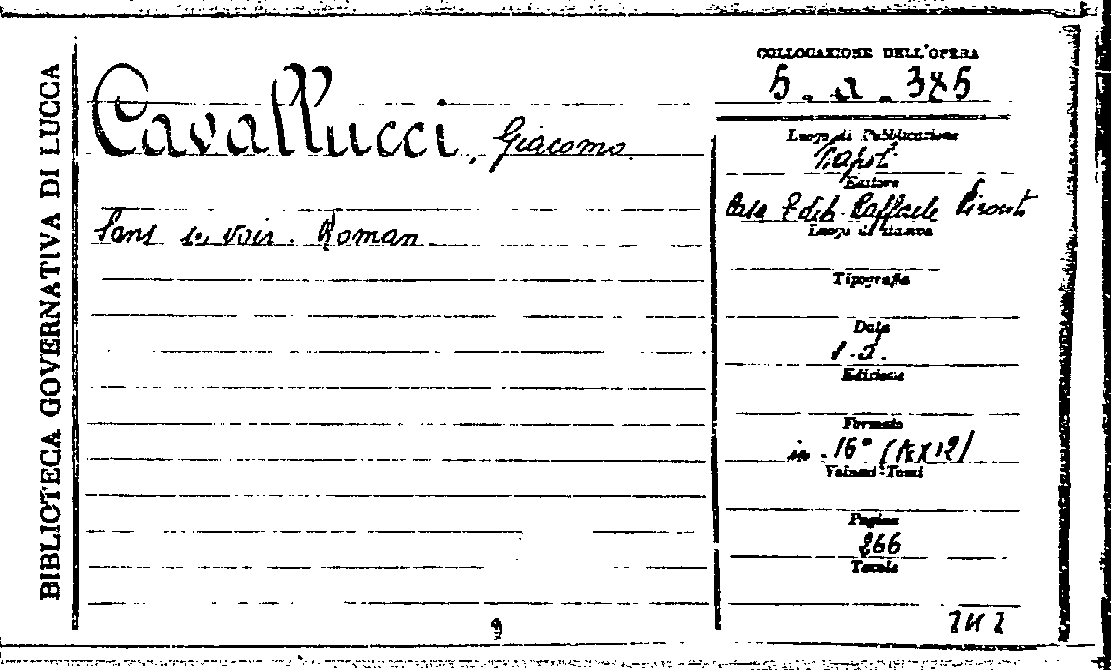 BIBLIOTECA GOVERNATIVA DI LUCCA
Cavallucci, Giacomo
Sans se voir. Roman
COLLOCAZIONE DELL'OPERA
5. a. 385
Luogo di Pubblicazione
Napoli
Editore
Casa Edit. Raffaele Pironti
Luogo di stampa
Tipografia
Data
s.d.
Edizione
Formato
in-16° (19x12)
Volumi-Tomi
Pagine
266
Tavole
9